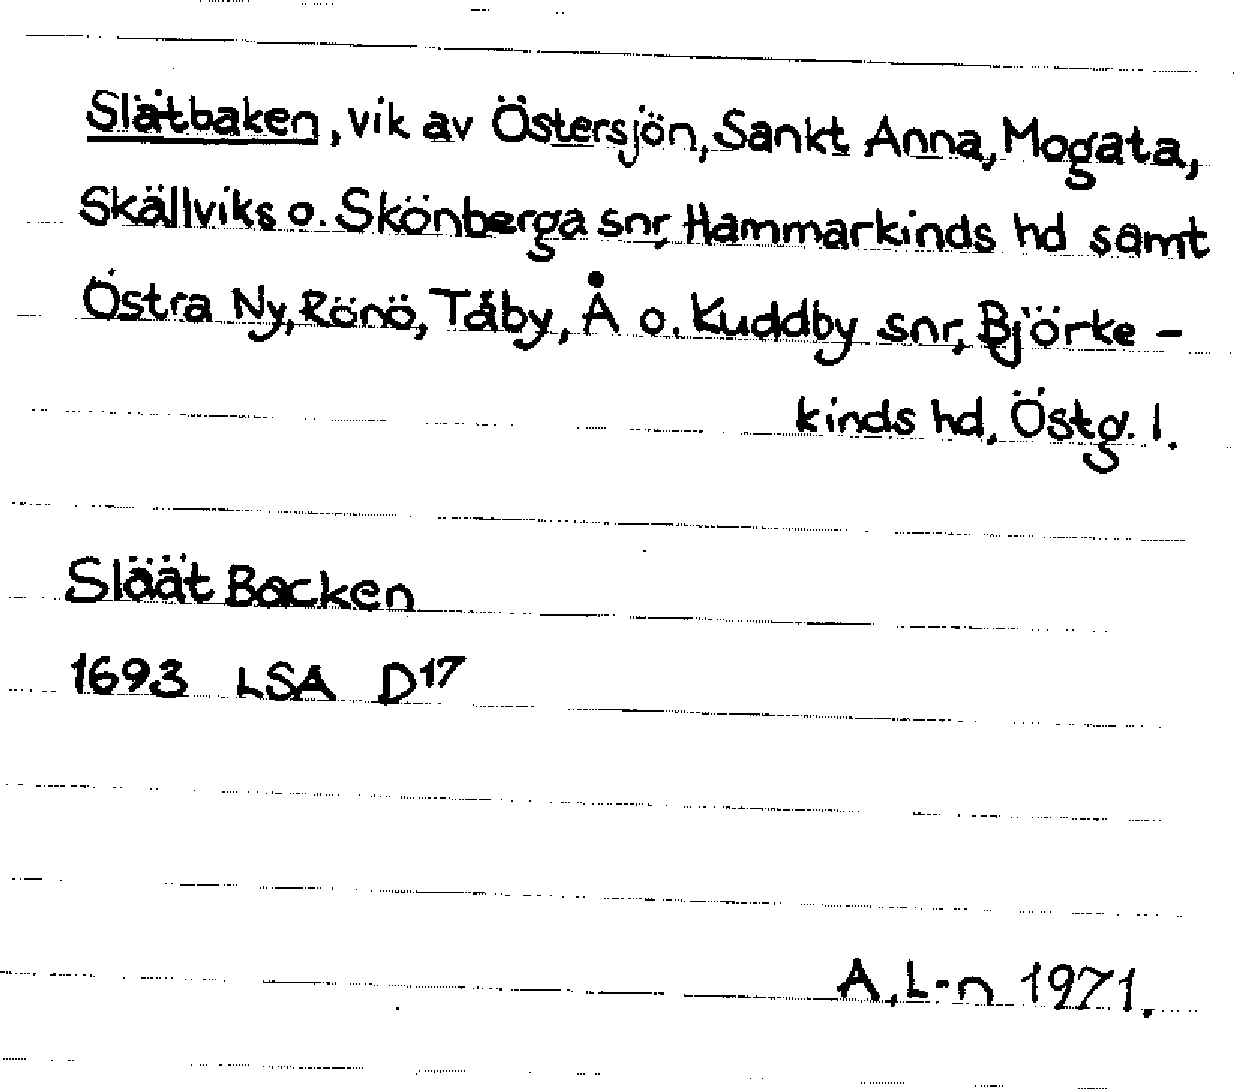 Slätbaken, vik av Östersjön, Sankt Anna, Mogata,
Skällviks o. Skönberga snr, Hammarkinds hd samt
Östra Ny, Rönö, Tåby, Å o. Kuddby snr, Björke-
kinds hd, Östg. l.
Släät Backen
1693 LSA D17
A. L-n 1971.